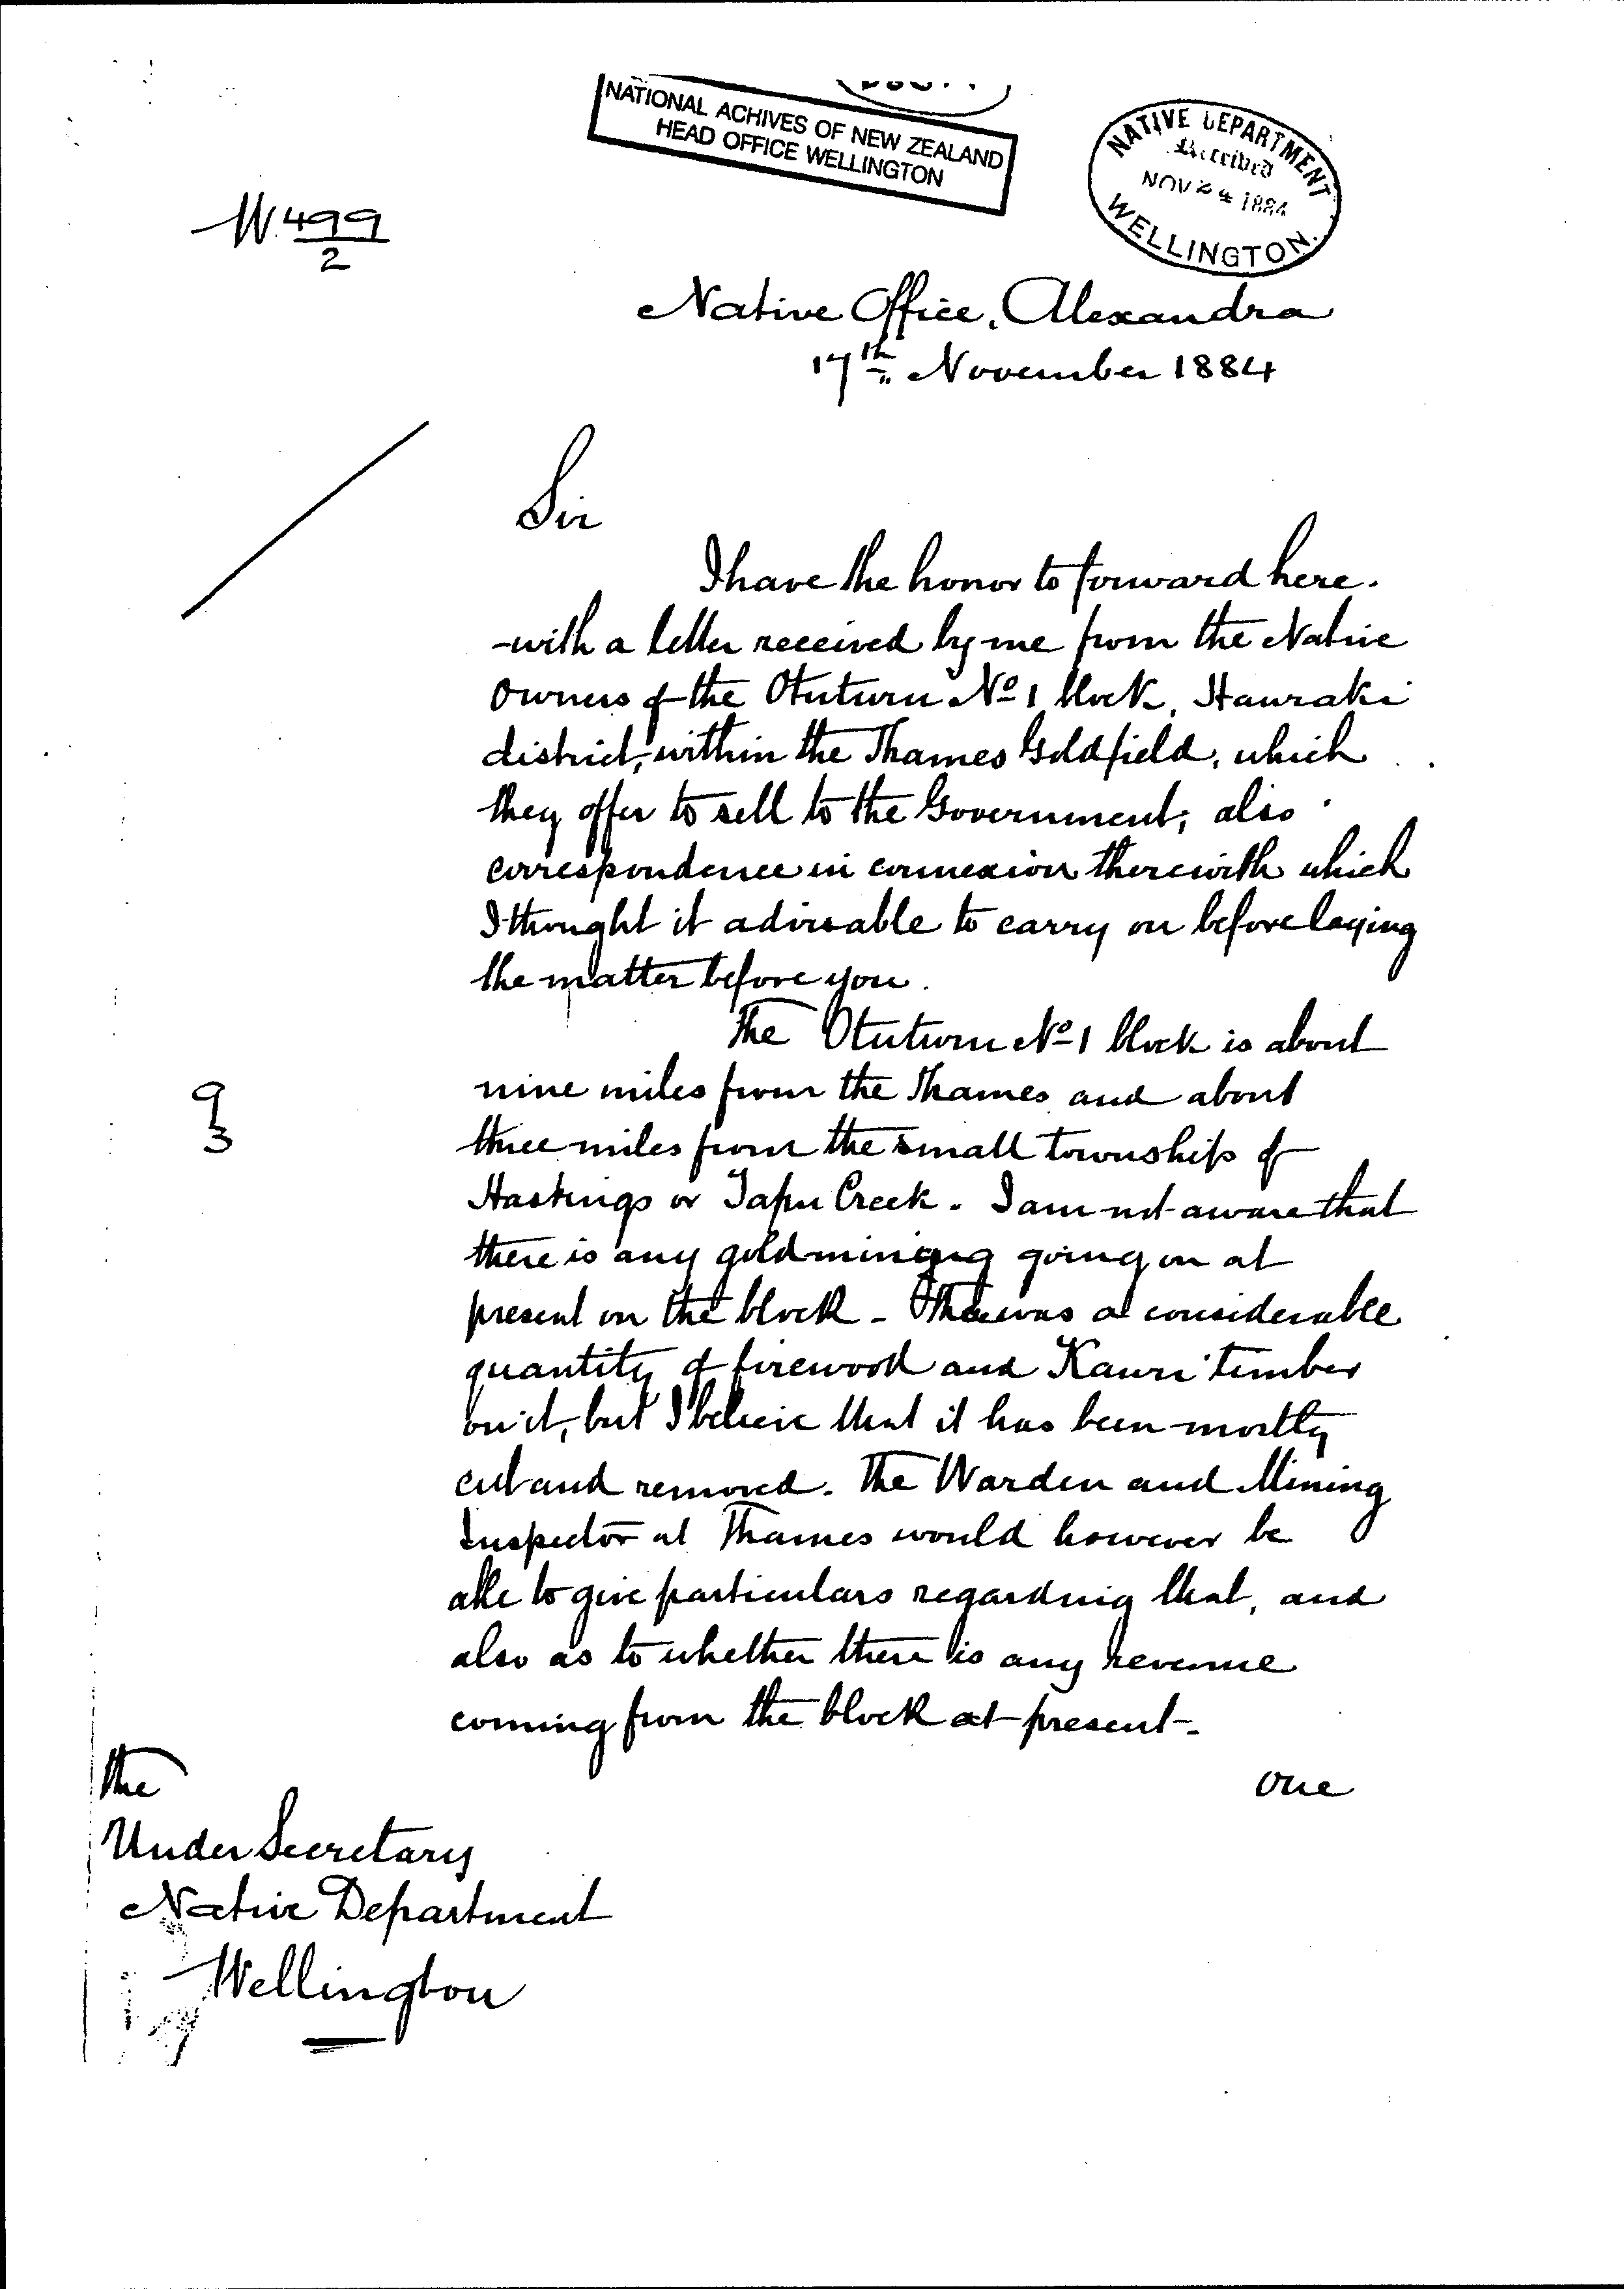 NATIONAL ACHIVES OF NEW ZEALAND
HEAD OFFICE WELLINGTON
NATIVE DEPARTMENT
Received
NOV 24 1884
WELLINGTON.
W. 499
2
Native Office, Alexandra
17th November 1884
Sir
I have the honor to forward here-
-with a letter received by me from the Native
owners of the Otuturu No 1 block, Hauraki
district, within the Thames Goldfield, which
they offer to sell to the Government; also
correspondence in connexion therewith which
I thought it advisable to carry on before laying
the matter before you.
The Otuturu No 1 block is about
nine miles from the Thames and about
three miles from the small township of
Hastings or Tapu Creek. I am not aware that
there is any goldmining going on at
present on the block - There was a considerable
quantity of firewood and Kauri timber
on it, but I believe that it has been mostly
cut and removed. The Warden and Mining
Inspector at Thames would however be
able to give particulars regarding that, and
also as to whether there is any revenue
coming from the block at present -
9
3
one
The
Under Secretary
Native Department
Wellington